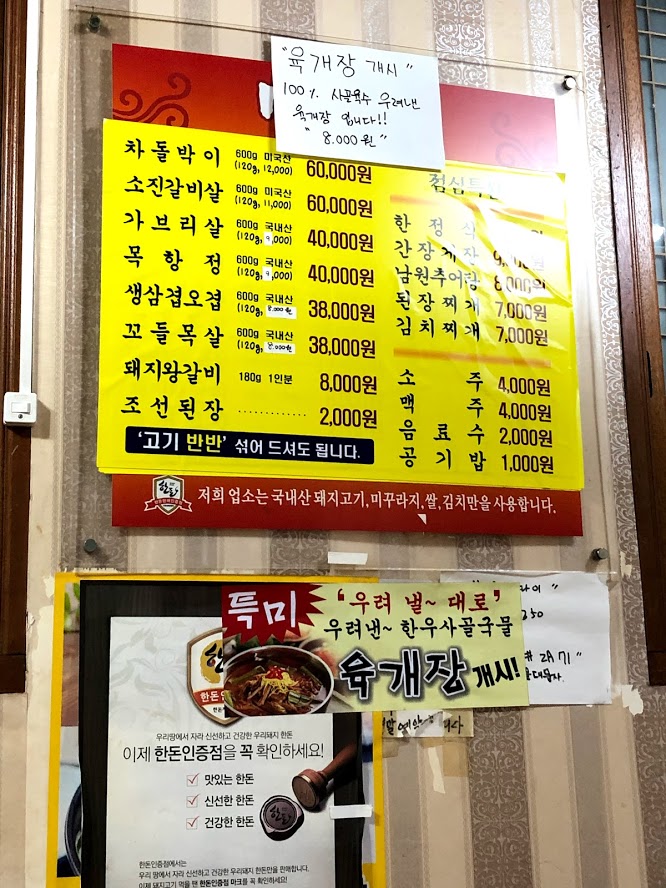 "육개장 개시"
100% 사골육수 우려낸
육개장 입니다!!
"8.000원"
차돌박이 600g 미국산 (120g, 12,000) 60,000원
소진갈비살 600g 미국산 (120g, 11,000) 60,000원
가브리살 600g 국내산 (120g, 9,000) 40,000원
목항정 600g 국내산 (120g, 9,000) 40,000원
생삼겹오겹 600g 국내산 (120g, 8.000원 38,000원
꼬들목살 600g 국내산 (120g, 8.000원 38,000원
돼지왕갈비 180g 1인분 8,000원
조선된장 ············ 2,000원
'고기 반반' 섞어 드셔도 됩니다.
점심특선
한정식
간장게장
남원추어탕 8,000원
된장찌개 7,000원
김치찌개 7,000원
소주 4,000원
맥주 4,000원
음료수 2,000원
공기밥 1,000원
한돈
저희 업소는 국내산 돼지고기, 미꾸라지, 쌀, 김치만을 사용합니다.
특미 '우려 낼~ 대로'
우려낸~ 한우사골국물
육개장 개시!
우리땅에서 자라 신선하고 건강한 우리돼지 한돈
이제 한돈인증점을 꼭 확인하세요!
맛있는 한돈
신선한 한돈
건강한 한돈
한돈
한돈인증점에서는
우리 땅에서 자라 신선하고 건강한 우리돼지 한돈만을 판매합니다.
이제 돼지고기 먹을 땐 한돈인증점 마크를 꼭 확인하세요!